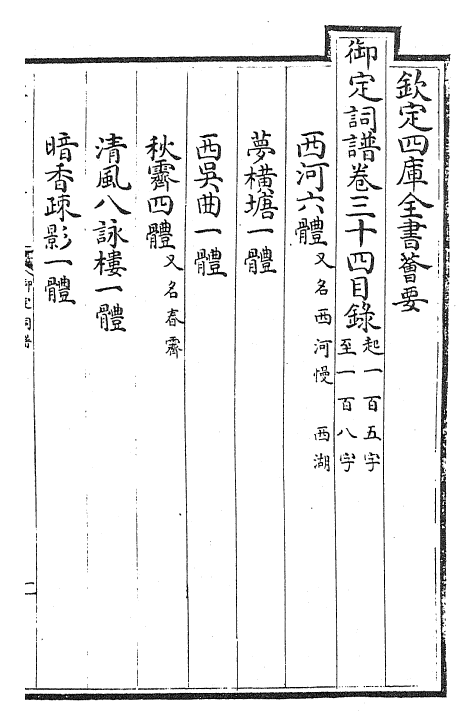 欽定四庫全書薈要
御定詞譜卷三十四目錄 起一百五字 至一百八字
西河六體 又名西河慢 西湖
夢橫塘一體
西吳曲一體
秋霽四體 又名春霽
清風八詠樓一體
暗香疎影一體